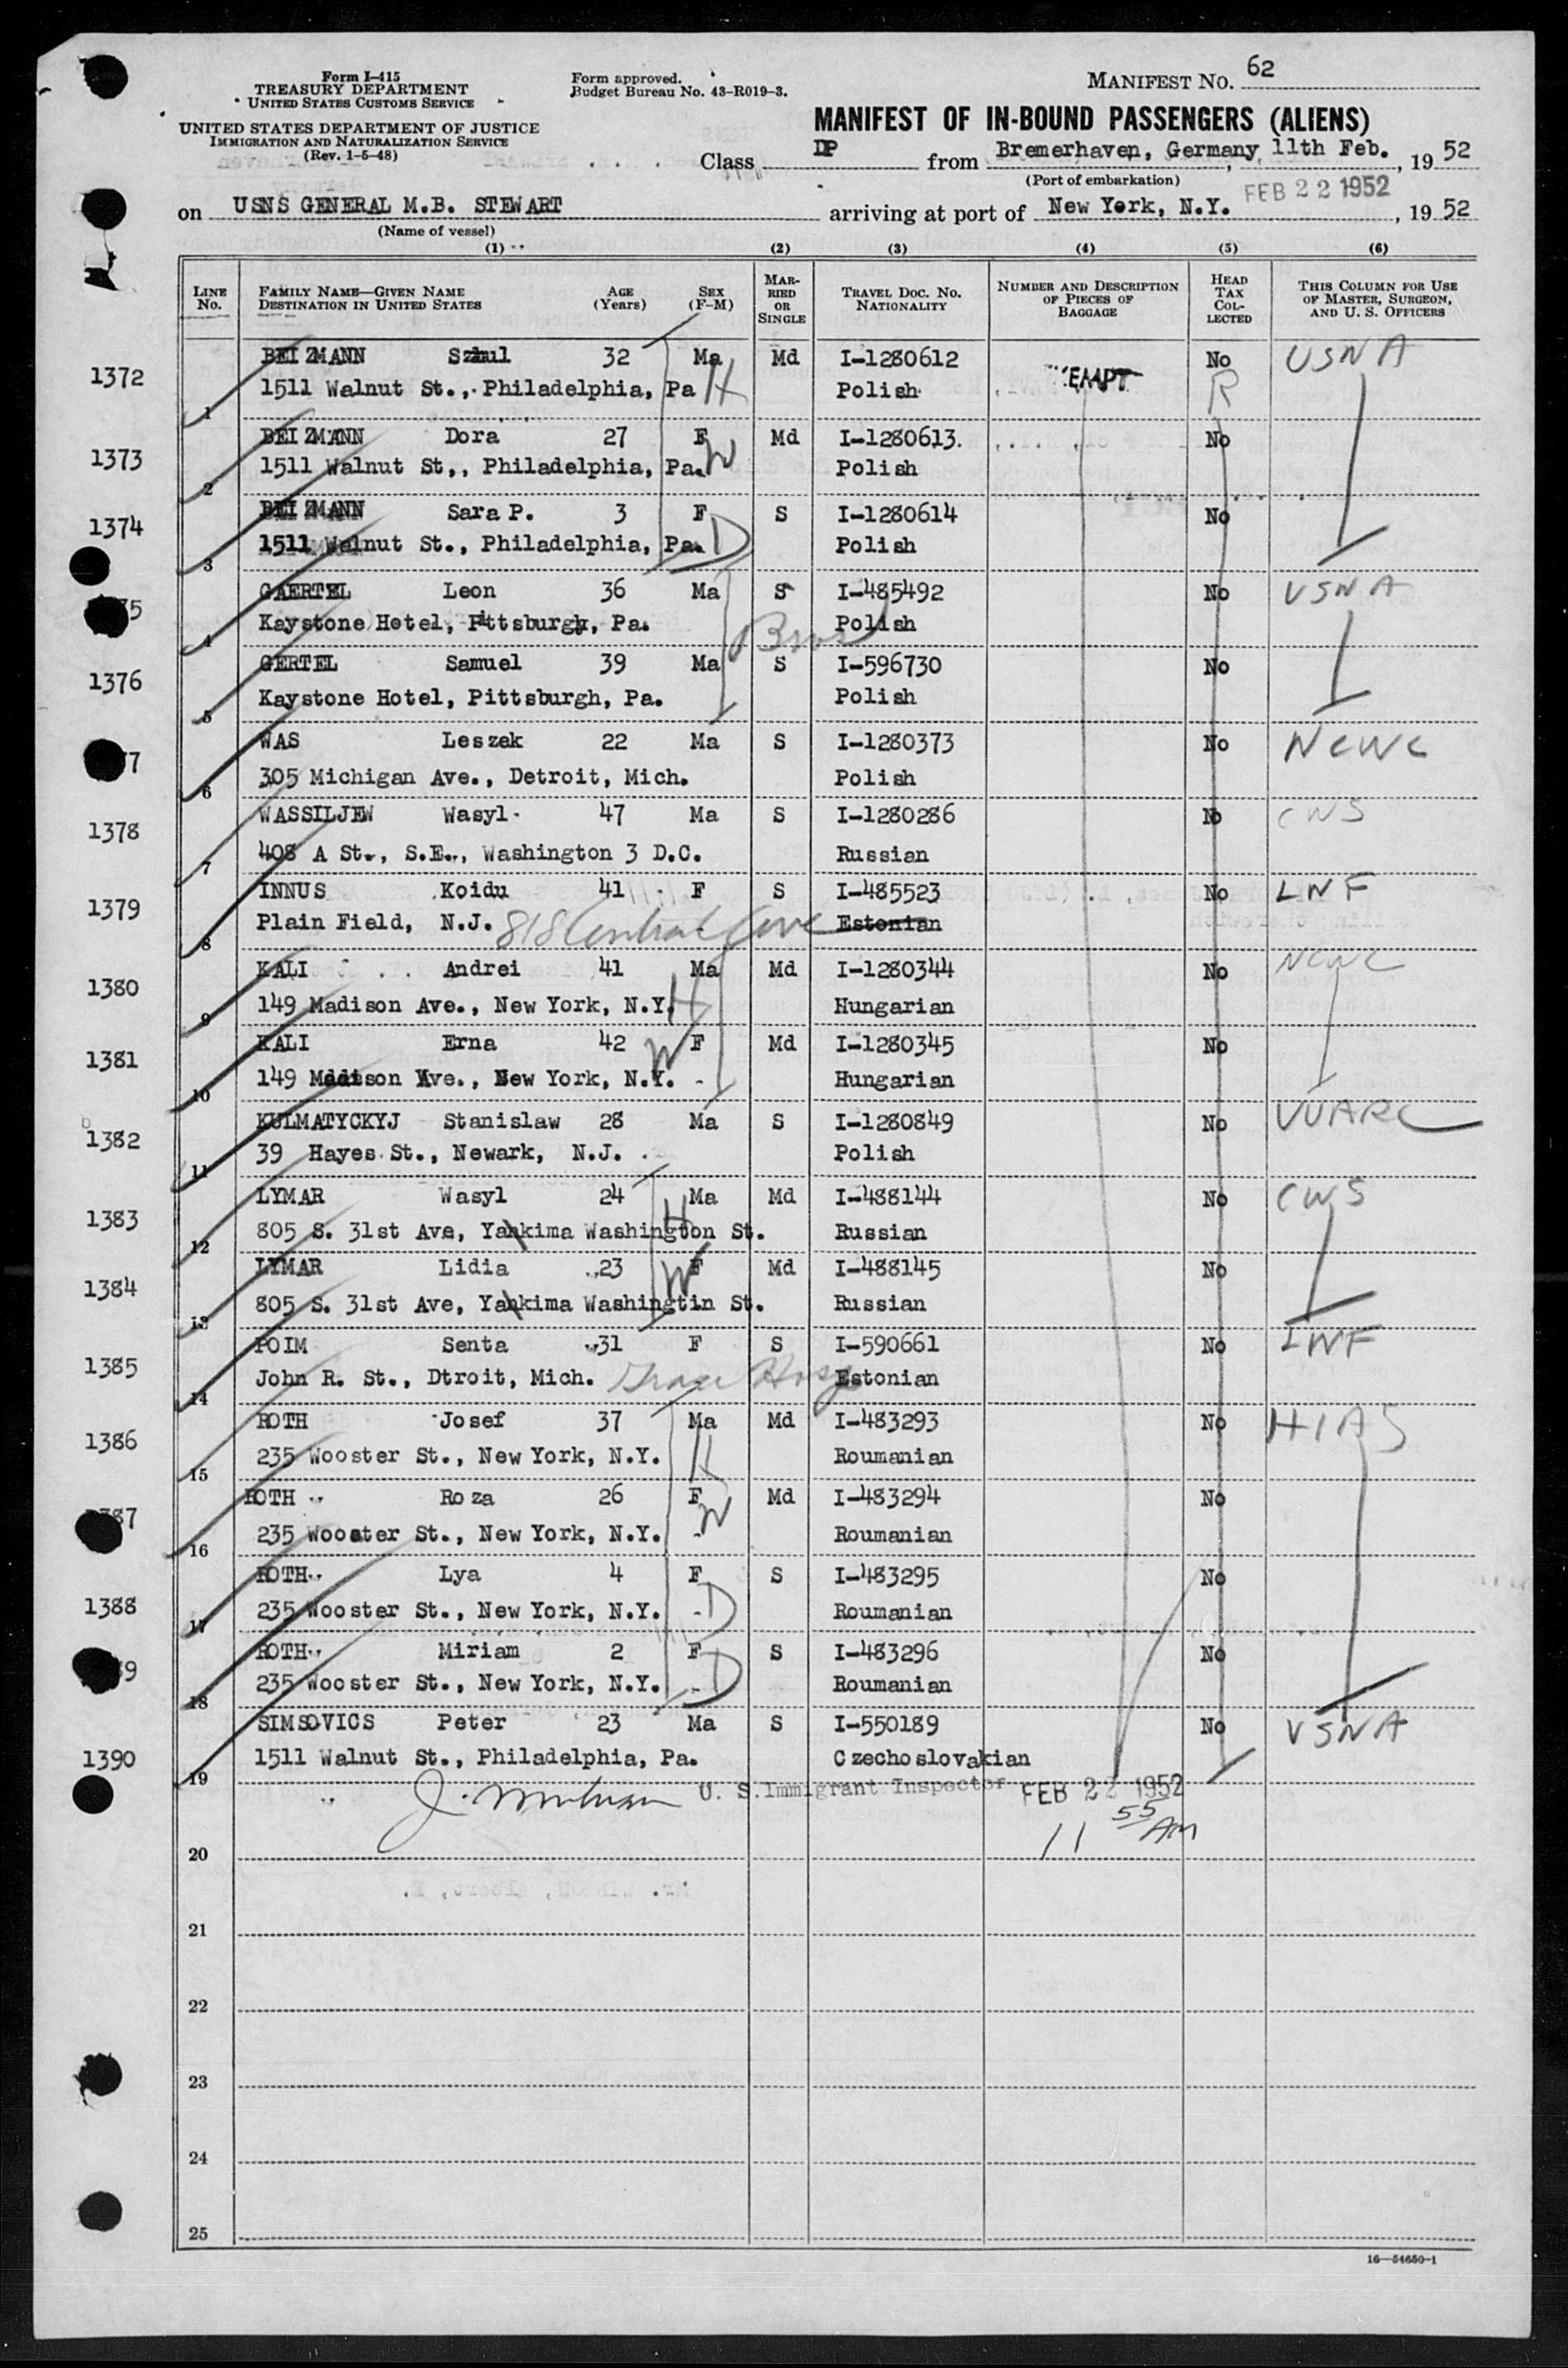 Form I-415
TREASURY DEPARTMENT
UNITED STATES CUSTOMS SERVICE
UNITED STATES DEPARTMENT OF JUSTICE
IMMIGRATION AND NATURALIZATION SERVICE
(Rev. 1-5-48)
Form approved.
Budget Bureau No. 43-R019-3.
MANIFEST NO. 62
MANIFEST OF IN-BOUND PASSENGERS (ALIENS)
Class DP from Bremerhaven, Germany, 11th Feb., 19 52
(Port of embarkation)
FEB 22 1952
on USNS GENERAL M.B. STEWART arriving at port of New York, N.Y., 19 52
(Name of vessel)
(1) (2) (3) (4) (5) (6)
LINE No. FAMILY NAME—GIVEN NAME DESTINATION IN UNITED STATES AGE (Years) SEX (F-M) MARRIED OR SINGLE TRAVEL DOC. NO. NATIONALITY NUMBER AND DESCRIPTION OF PIECES OF BAGGAGE HEAD TAX COLLECTED THIS COLUMN FOR USE OF MASTER, SURGEON, AND U. S. OFFICERS
1372 BEIZMANN Szmul 32 Ma Md I-1280612 No USNA
1 1511 Walnut St., Philadelphia, Pa H Polish EMPT R
1373 BEIZMANN Dora 27 F Md I-1280613. No
2 1511 Walnut St,, Philadelphia, Pa. W Polish
1374 BEIZMANN Sara P. 3 F S I-1280614 No
3 1511 Walnut St., Philadelphia, Pa. D Polish
5 GAERTEL Leon 36 Ma S I-485492 No USNA
4 Kaystone Hotel, Pittsburgh, Pa. Bros Polish
1376 GERTEL Samuel 39 Ma S I-596730 No
5 Kaystone Hotel, Pittsburgh, Pa. Polish
7 WAS Leszek 22 Ma S I-1280373 No NCWC
6 305 Michigan Ave., Detroit, Mich. Polish
1378 WASSILJEW Wasyl 47 Ma S I-1280286 No CWS
7 408 A St., S.E., Washington 3 D.C. Russian
1379 INNUS Koidu 41 F S I-485523 No LWF
8 Plain Field, N.J. 818 Central Ave Estonian
1380 KALI Andrei 41 Ma Md I-1280344 No NCWC
9 149 Madison Ave., New York, N.Y. H Hungarian
1381 KALI Erna 42 W F Md I-1280345 No
10 149 Madison Ave., New York, N.Y. Hungarian
1382 KULMATYCKYJ Stanislaw 28 Ma S I-1280849 No UUARC
11 39 Hayes St., Newark, N.J. Polish
1383 LYMAR Wasyl 24 Ma Md I-488144 No CWS
12 805 S. 31st Ave, Yankima Washington St. H Russian
1384 LYMAR Lidia 23 F Md I-488145 No
13 805 S. 31st Ave, Yankima Washingtin St. W Russian
1385 POIM Senta 31 F S I-590661 No LWF
14 John R. St., Dtroit, Mich. Grace Hosp Estonian
1386 ROTH Josef 37 Ma Md I-483293 No HIAS
15 235 Wooster St., New York, N.Y. H Roumanian
87 ROTH Roza 26 F Md I-483294 No
16 235 Wooster St., New York, N.Y. W Roumanian
ROTH Lya 4 F S I-483295 No
1388 17 235 Wooster St., New York, N.Y. D Roumanian
9 ROTH Miriam 2 F S I-483296 No
18 235 Wooster St., New York, N.Y. D Roumanian
SIMSOVICS Peter 23 Ma S I-550189 No USNA
1390 19 1511 Walnut St., Philadelphia, Pa. Czechoslovakian
U. S. Immigrant Inspector FEB 22 1952
11 55 AM
20
21
22
23
24
25
16—54650-1